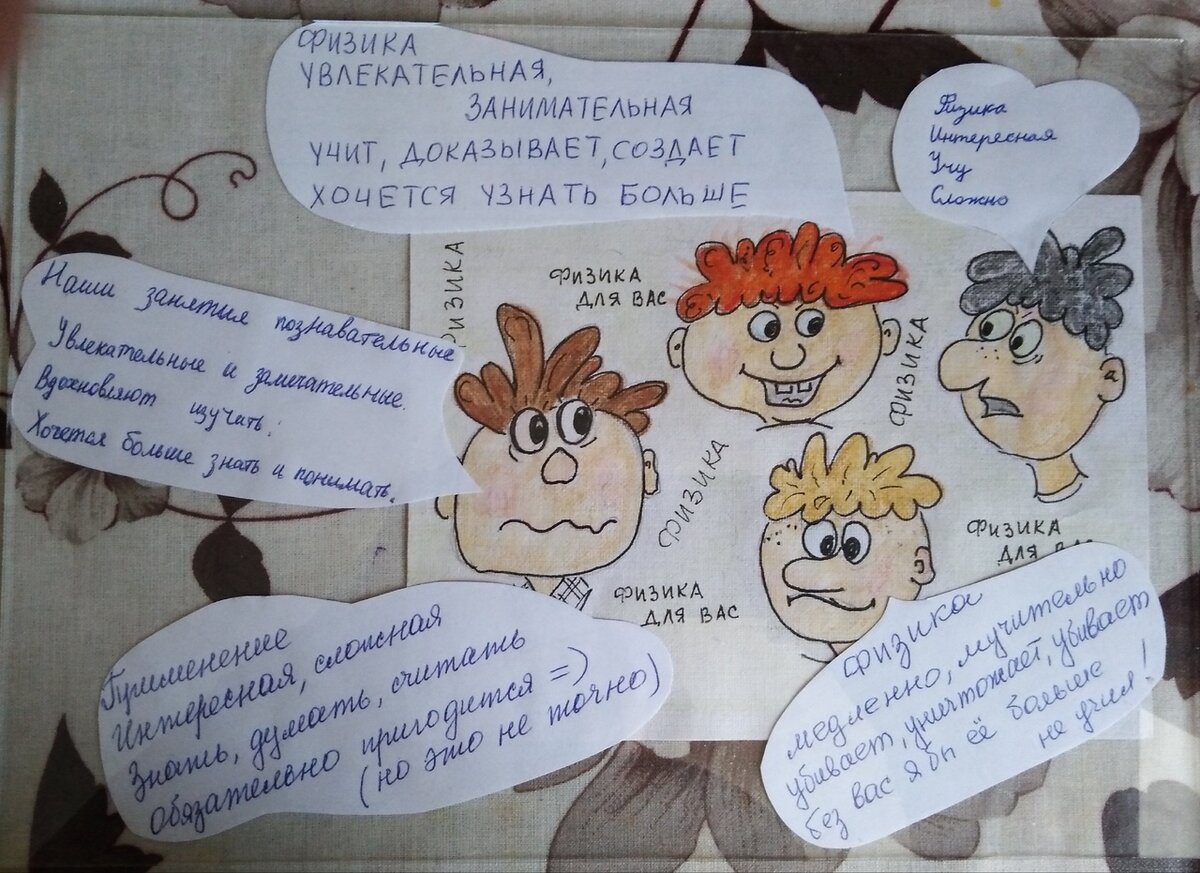 ФИЗИКА
УВЛЕКАТЕЛЬНАЯ,
ЗАНИМАТЕЛЬНАЯ
УЧИТ, ДОКАЗЫВАЕТ, СОЗДАЕТ
ХОЧЕТСЯ УЗНАТЬ БОЛЬШЕ
Физика
Интересная
Учу
Сложно
Наши занятия познавательные
Увлекательные и замечательные.
Вдохновляют изучать.
Хочется больше знать и понимать.
ФИЗИКА
ФИЗИКА
ДЛЯ ВАС
ФИЗИКА
ФИЗИКА
ФИЗИКА
ДЛЯ ВАС
ФИЗИКА
ДЛЯ ВАС
Применение
Интересная, сложная
Знать, думать, считать
Обязательно пригодится =)
(но это не точно)
Физика
медленно, мучительно
убивает, уничтожает, убивает
без вас я бы её больше
не учил!